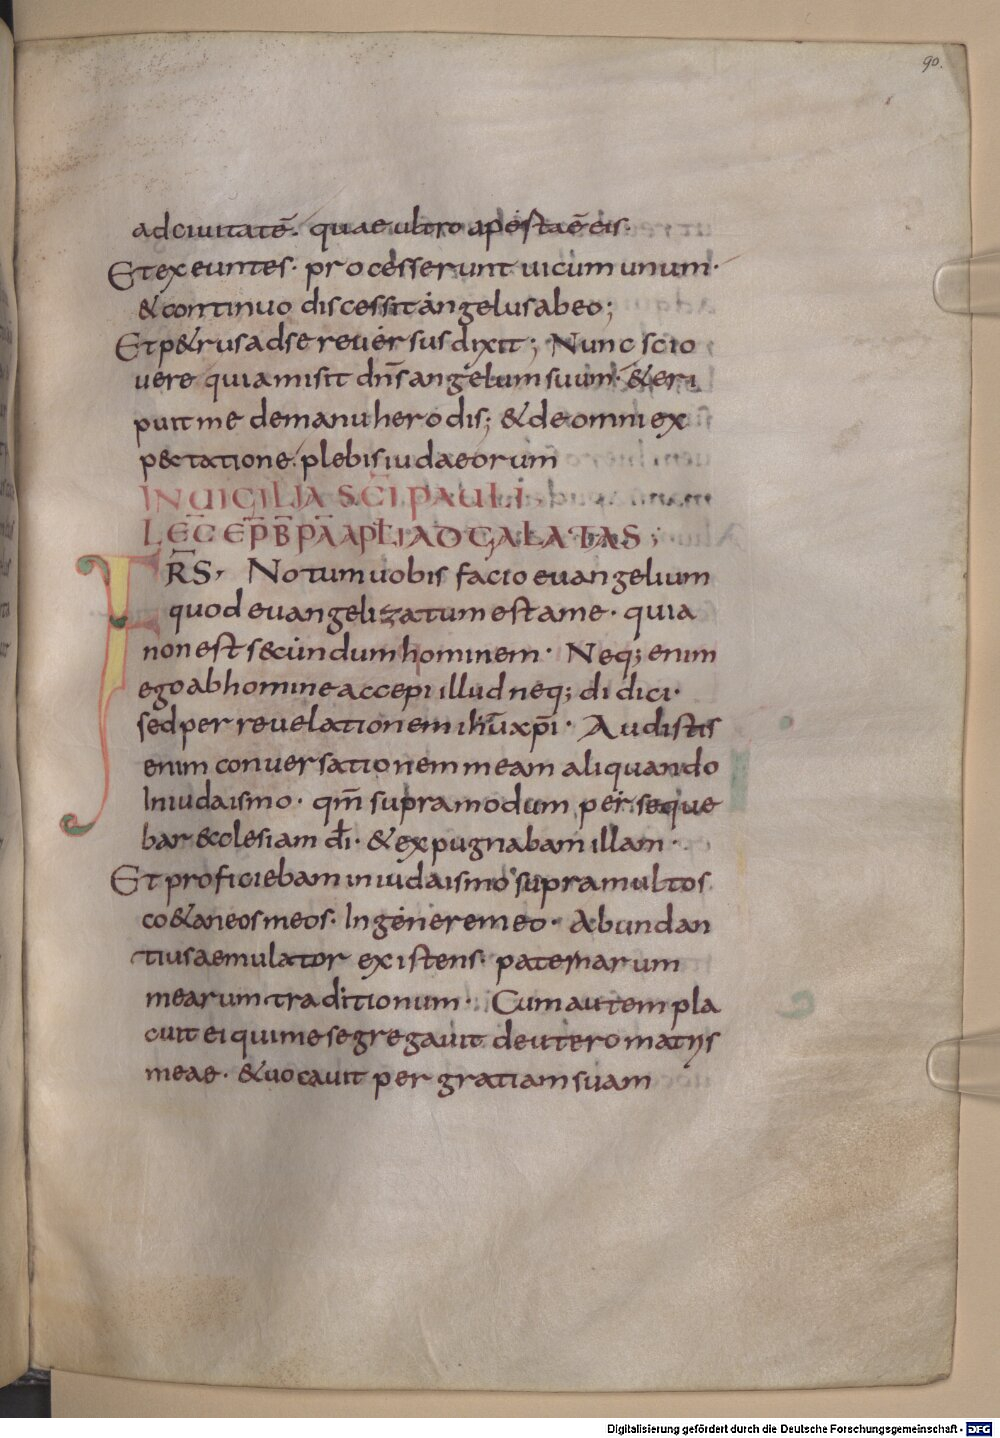 90.
ad ciuitatē. quae ultro aperta ē eis.
Et exeuntes. processerunt uicum unum.
& continuo discessit angelus ab eo;
Et p&rus ad se reuersus dixit; Nunc scio
uere quia misit dn̄s angelum suum. & eri
puit me de manu herodis; & de omni ex
pectatione plebis iudaeorum
IN UIGILIA SC̄I PAULI
LEC̄ EP̄ B̄ PĀ APLI AD GALATAS;
FR̄S, Notum uobis facio euangelium
quod euangelizatum est a me. quia
non est s&cundum hominem. Neq; enim
ego ab homine accepi illud neq; didici.
sed per reuelationem ihū xp̄i. Audistis
enim conuersationem meam aliquando
In iudaismo. qm̄ supra modum perseque
bar ecclesiam dī. & expugnabam illam.
Et proficiebam in iudaismo supra multos
co&aneos meos. In genere meo. Abundan
tius aemulator existens. paternarum
mearum traditionum. Cum autem pla
cuit ei qui me segregauit de utero matris
meae. & uocauit per gratiam suam
Digitalisierung gefördert durch die Deutsche Forschungsgemeinschaft - DFG